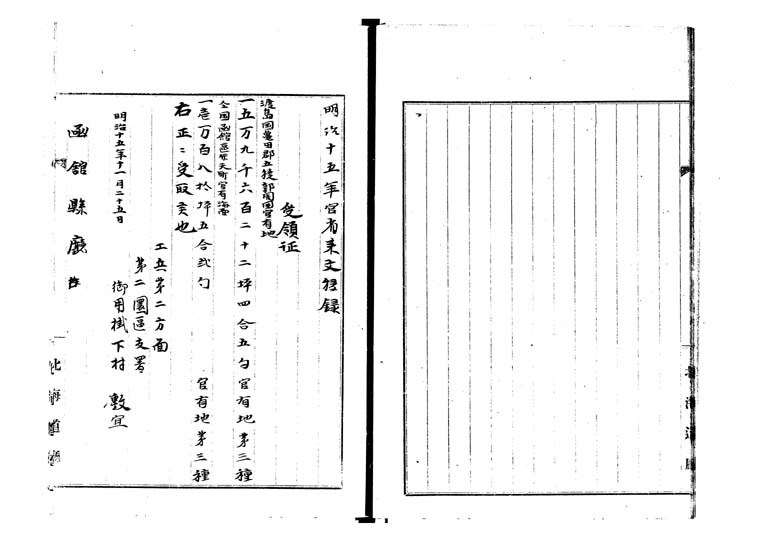 明治十五年官省来文移録
受領証
渡島国亀田郡五稜郭周囲官有地
一五万九千六百二十二坪四合五勺官有地第三種
仝国函館区弁天町官有海面
一壱万百八拾坪五合弐勺　官有地第三種
右正ニ受取候也
工兵第二方面
第二圍區支署
御用掛下村　敷宜
明治十五年十一月二十五日
函館縣廳
北海道廳